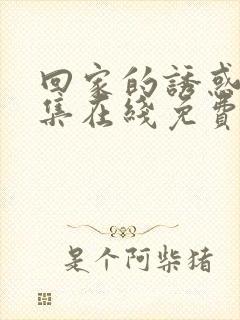 回家的誘惑
集在綫免費
是个阿柴猪